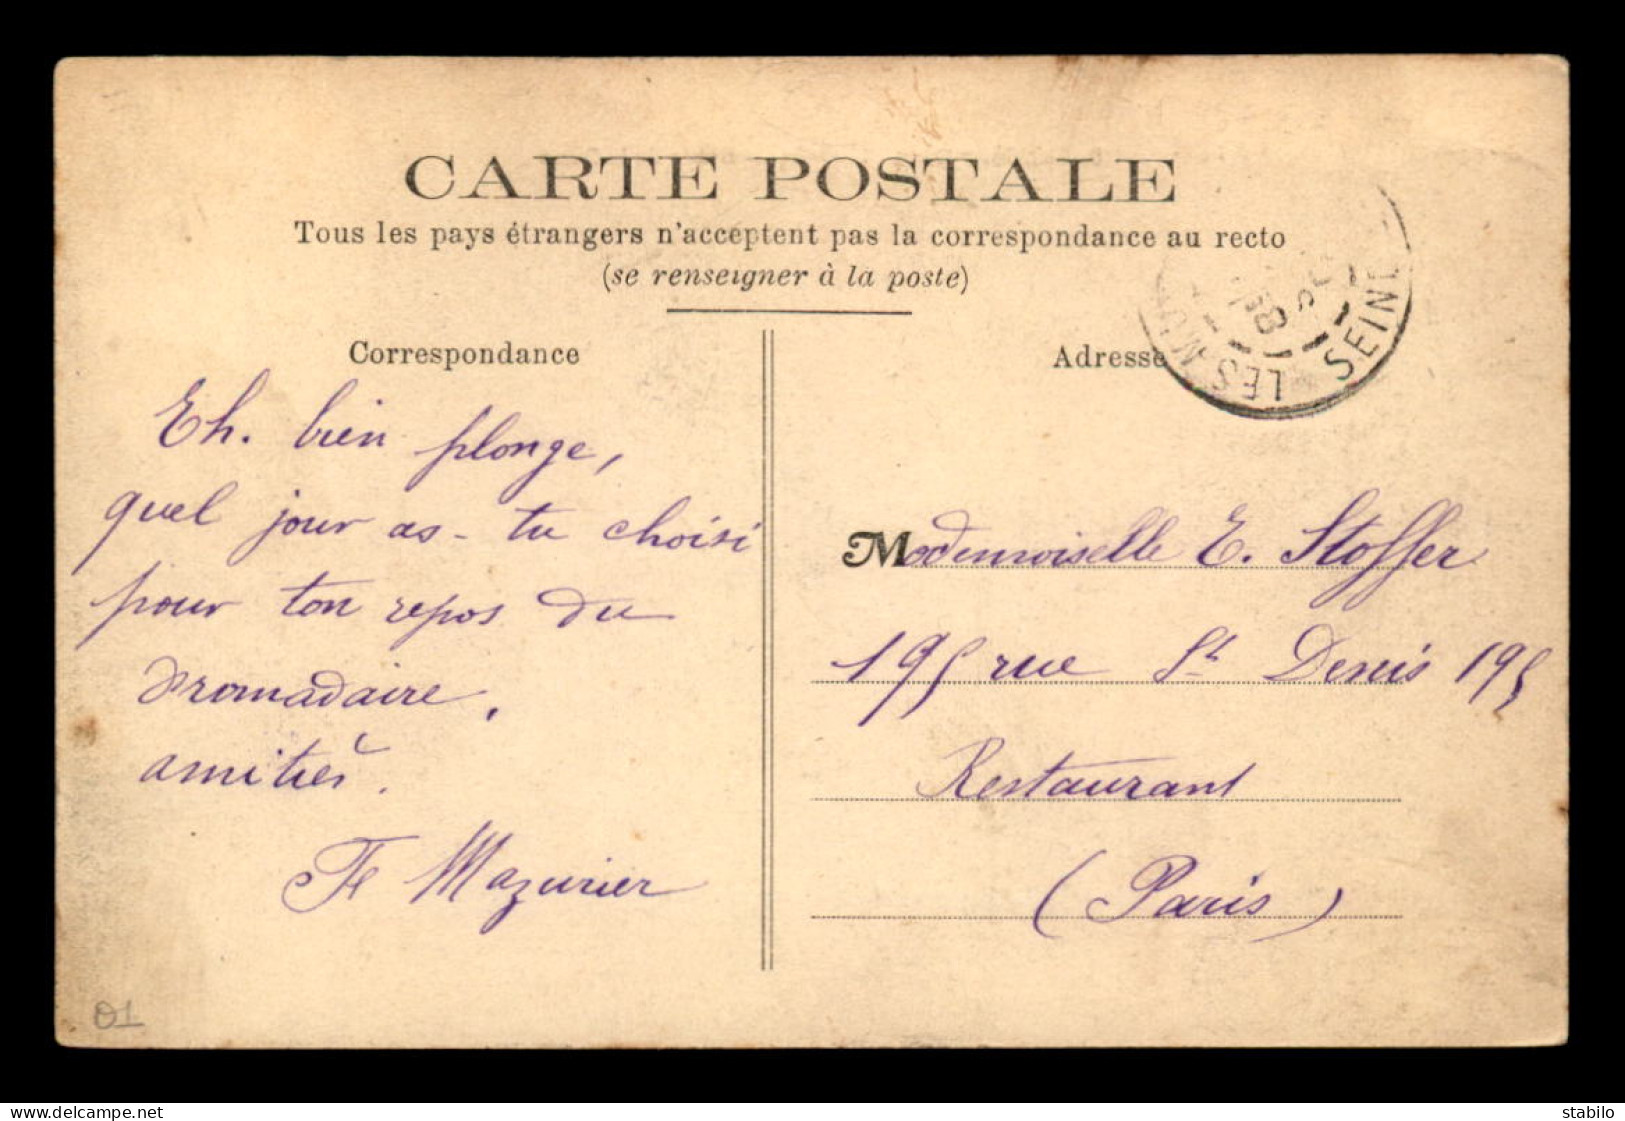 CARTE POSTALE
Tous les pays étrangers n'acceptent pas la correspondance au recto
(se renseigner à la poste)
Correspondance
Eh. bien plonge,
quel jour as-tu choisi
pour ton repos du
dromadaire.
amitiès.
Mazurier
Adresse
LES MU
SEINE
Mademoiselle E. Stoffer
195 rue St Denis 195
Restaurant
(Paris)
01
delcampe.net
stabilo